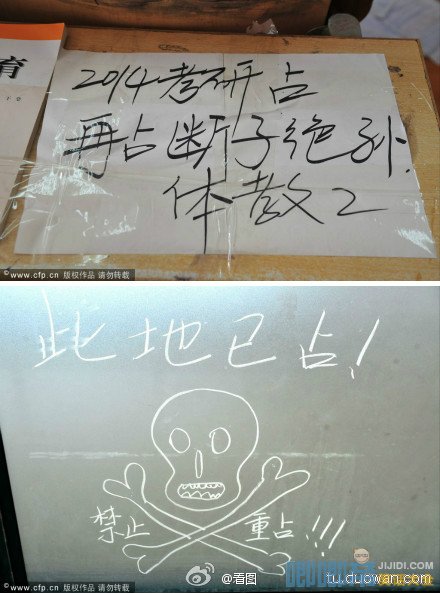 育
2014考研占
再占断子绝孙.
体教2
©www.cfp.cn 版权作品 请勿转载
此地已占!
禁止 重占!!!
JIJIDI.COM
©www.cfp.cn 版权作品 请勿转载
@看图
tu.duowan.com